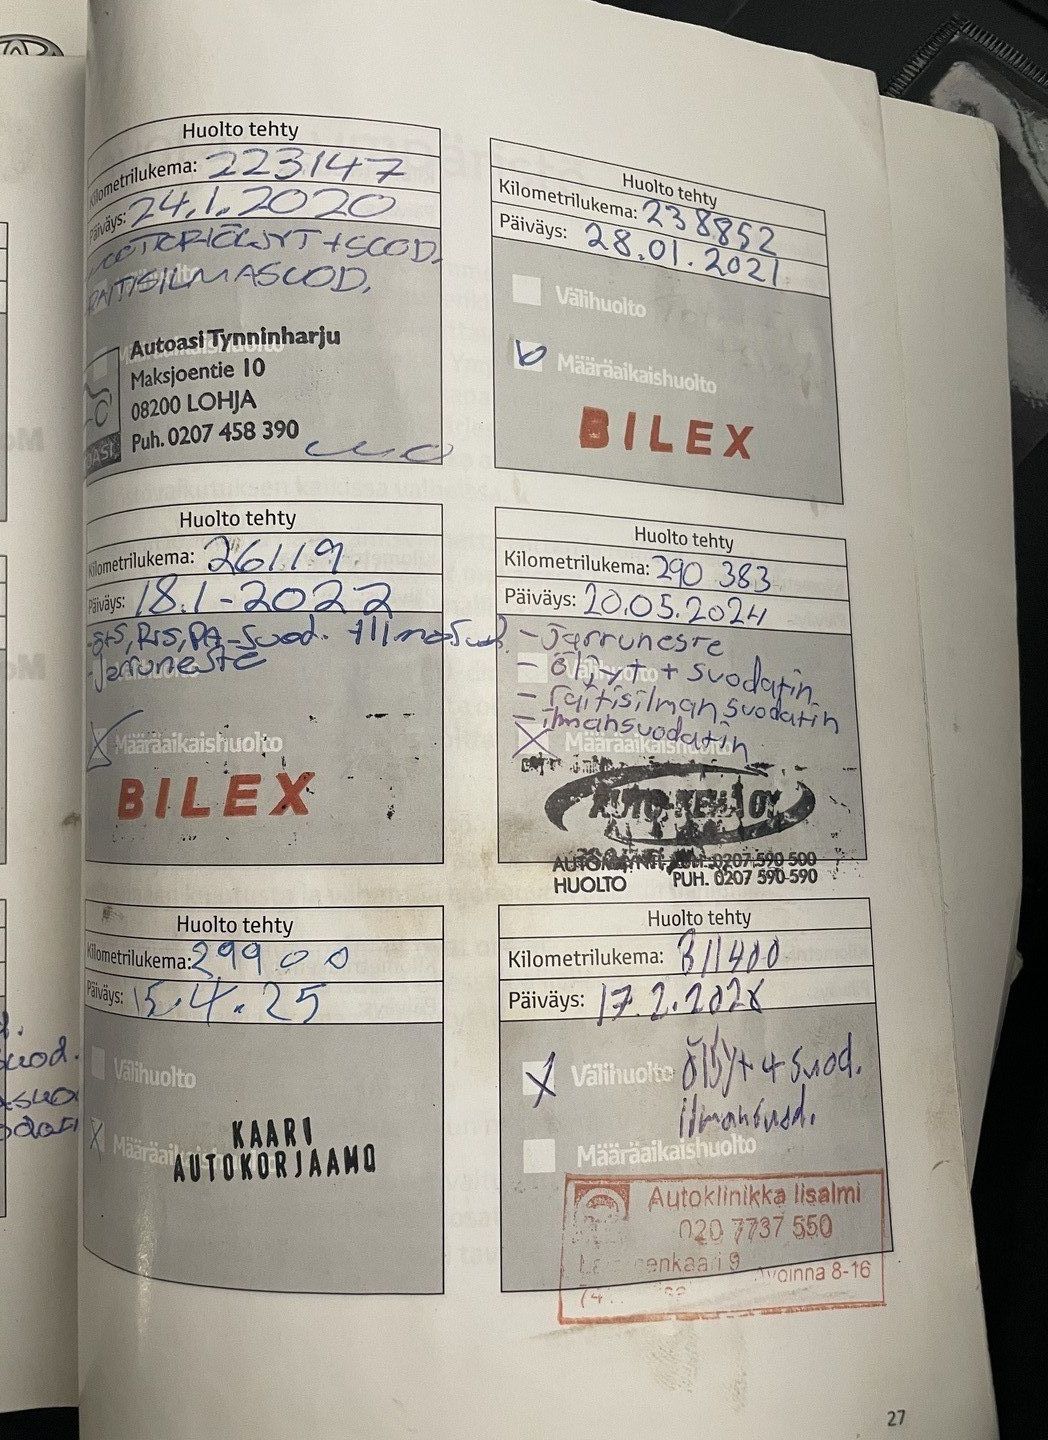 Huolto tehty
Kilometrilukema: 223147
Päiväys: 24.1.2020
MOOTTORIÖLJYT + SUOD.
RAITISILMASUOD.
Autoasi Tynninharju
Maksjoentie 10
08200 LOHJA
Puh. 0207 458 390
Huolto tehty
Kilometrilukema: 238852
Päiväys: 28.01.2021
Välihuolto
Määräaikaishuolto
BILEX
Huolto tehty
Kilometrilukema: 26119
Päiväys: 18.1-2022
suod.
-jarruneste
Määräaikaishuolto
BILEX
Huolto tehty
Kilometrilukema: 290 383
Päiväys: 20.05.2024
- jarruneste
- öljyt + suodatin
- raitisilmansuodatin
- ilmansuodatin
Määräaikaishuolto
AUTO-KEHÄ OY
0207 590 500
HUOLTO PUH. 0207 590 590
Huolto tehty
Kilometrilukema: 299 00
Päiväys: 15.4.25
Välihuolto
Määräaikaishuolto
KAARI
AUTOKORJAAMO
Huolto tehty
Kilometrilukema: 311400
Päiväys: 17.2.2026
Välihuolto öljyt + suod.
ilmansuod.
Määräaikaishuolto
Autoklinikka Iisalmi
020 7737 550
enkaari 9
avoinna 8-16
74
uod.
27